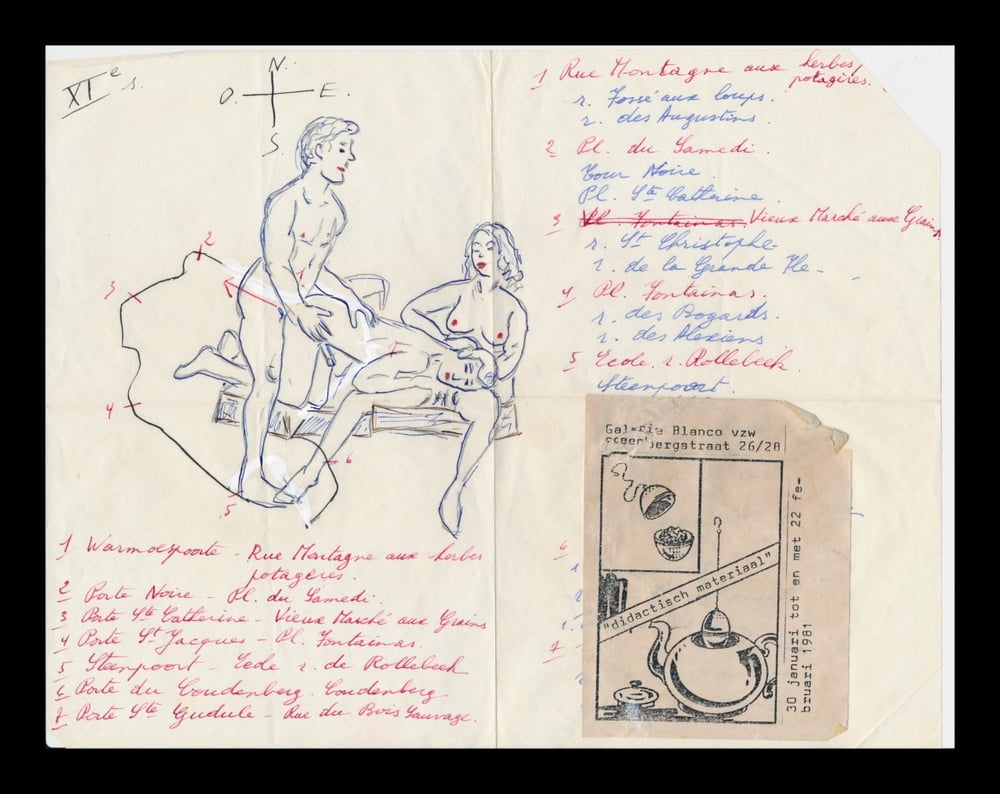 XIe s.
N.
O. E.
S
2
1
3
1
4
6
5
1 Warmoespoorte - Rue Montagne aux herbes
potagères.
2 Porte Noire - Pl. du Samedi.
3 Porte Ste Catherine - Vieux Marché aux Grains
4 Porte St Jacques - Pl. Fontainas.
5 Steenpoort - Ecole r. de Rollebeek
6 Porte du Coudenberg. Coudenberg
7 Porte Ste Gudule - Rue du Bois Sauvage.
1 Rue Montagne aux herbes
potagères.
r. Fossé aux loups.
r. des Augustins.
2 Pl. du Samedi.
Tour Noire.
Pl. Ste Catherine.
3 Pl. Fontainas. Vieux Marché aux Grains.
r. St Christophe-
r. de la Grande Ile-
4 Pl. Fontainas.
r. des Bogards.
r. des Alexiens
5 Ecole. r. Rollebeek.
Steenpoort.
6
7
Galerie Blanco vzw
steenbergstraat 26/28
"didactisch materiaal"
30 januari tot en met 22 fe-
bruari 1981